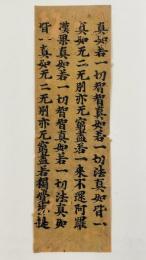 真如若一切智智真如若一切法真如皆一
真如无二无別亦无窮盡若一來不還阿羅
漢果真如若一切智智真如若一切法真如
皆一真如无二无別亦无窮盡若獨覺菩提